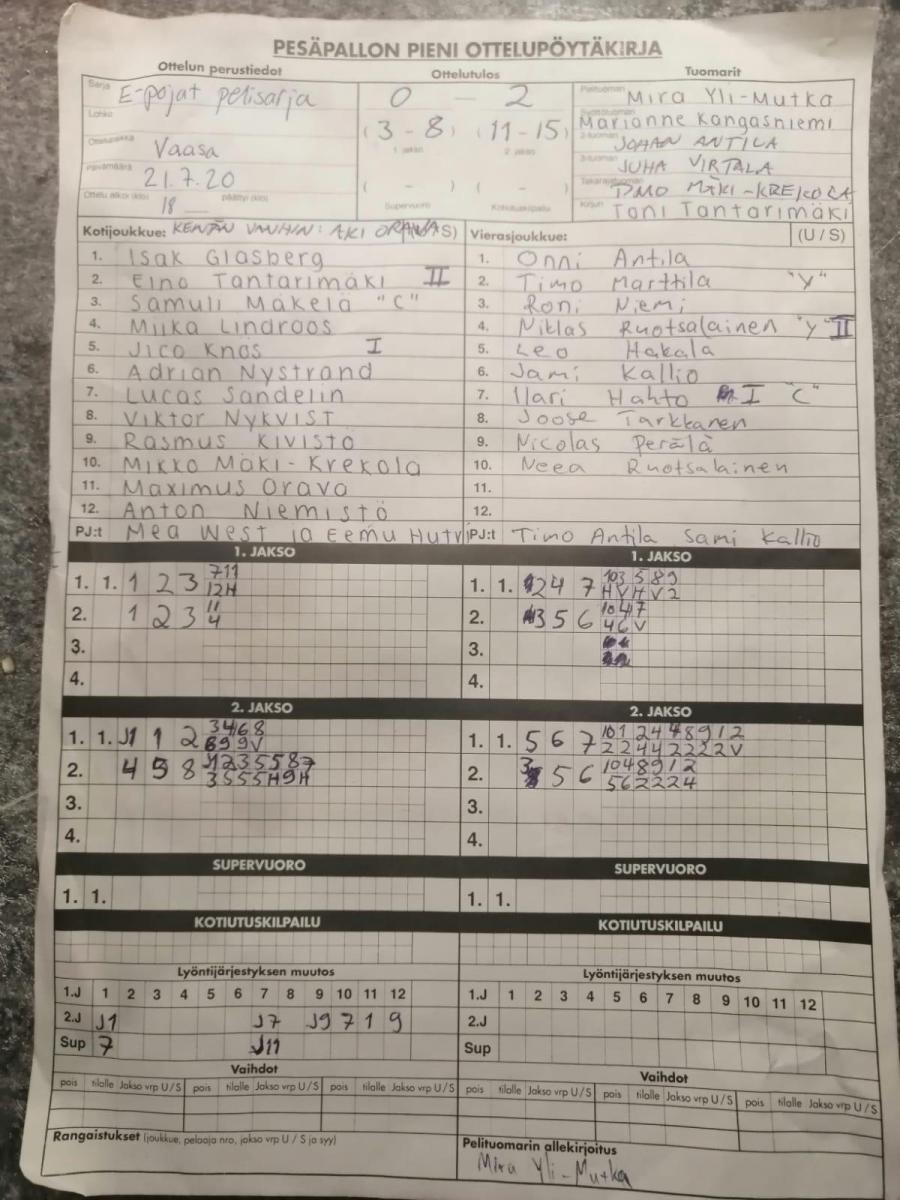 PESÄPALLON PIENI OTTELUPÖYTÄKIRJA
Ottelun perustiedot Ottelutulos Tuomarit
Sarja E-pojat pelisarja 0 – 2 Pelituomari Mira Yli-Mutka
Lohko (3 - 8) (11 - 15) Marianne Kangasniemi
1. jakso 2. jakso 2-tuomari JOHAN ANTILA
Ottelupaikka Vaasa 3-tuomari JUHA VIRTALA
Päivämäärä 21.7.20 ( - ) ( - ) Takarajatuomari MÄKI-KREKOLA
Ottelu alkoi (klo) 18 päättyi (klo) Supervuoro Kotiutuskilpailu Kirjuri Toni Tantarimäki
Kotijoukkue: KENTÄN VANHIN: AKI ORAVA S) Vierasjoukkue: (U / S)
1. Isak Glasberg 1. Onni Antila
2. Eino Tantarimäki II 2. Timo Marttila "Y"
3. Samuli Mäkelä "C" 3. Roni Niemi
4. Miika Lindroos 4. Niklas Ruotsalainen "Y" II
5. Jico Knös I 5. Leo Hakala
6. Adrian Nystrand 6. Jami Kallio
7. Lucas Sandelin 7. Ilari Hahto I "C"
8. Viktor NYKVIST 8. Joose Tarkkanen
9. Rasmus Kivistö 9. Nicolas Perälä
10. Mikko Mäki-Krekola 10. Neea Ruotsalainen
11. Maximus Orava 11.
12. Anton Niemistö 12.
PJ:t Mea West ja Eemu Hutri PJ:t Timo Antila Sami Kallio
1. JAKSO 1. JAKSO
1. 1. 1 2 3 7 11 1. 1. 2 4 7 10 3 5 8 9
12 H H V H V 2
2. 1 2 3 11 2. 3 5 6 10 4 7
4 4 6 V
3. 3.
4. 4.
2. JAKSO 2. JAKSO
1. 1. J1 1 2 3 4 6 8 1. 1. 5 6 7 10 1 2 4 4 8 9 1 2
9 9 V 2 2 4 4 2 2 2 2 V
2. 4 5 8 J1 2 3 5 5 8 7 2. 3 5 6 10 4 8 9 1 2
3 5 5 5 H 9 H 5 6 2 2 2 4
3. 3.
4. 4.
SUPERVUORO SUPERVUORO
1. 1. 1. 1.
KOTIUTUSKILPAILU KOTIUTUSKILPAILU
Lyöntijärjestyksen muutos Lyöntijärjestyksen muutos
1.J 1 2 3 4 5 6 7 8 9 10 11 12 1.J 1 2 3 4 5 6 7 8 9 10 11 12
2.J J1 J7 J9 7 1 9 2.J
Sup 7 J11 Sup
Vaihdot Vaihdot
pois tilalle Jakso vrp U / S pois tilalle Jakso vrp U / S pois tilalle Jakso vrp U / S pois tilalle Jakso vrp U / S pois tilalle Jakso vrp U / S pois tilalle Jakso vrp U / S
Rangaistukset (joukkue, pelaaja nro, jakso vrp U / S ja syy) Pelituomarin allekirjoitus
Mira Yli-Mutka